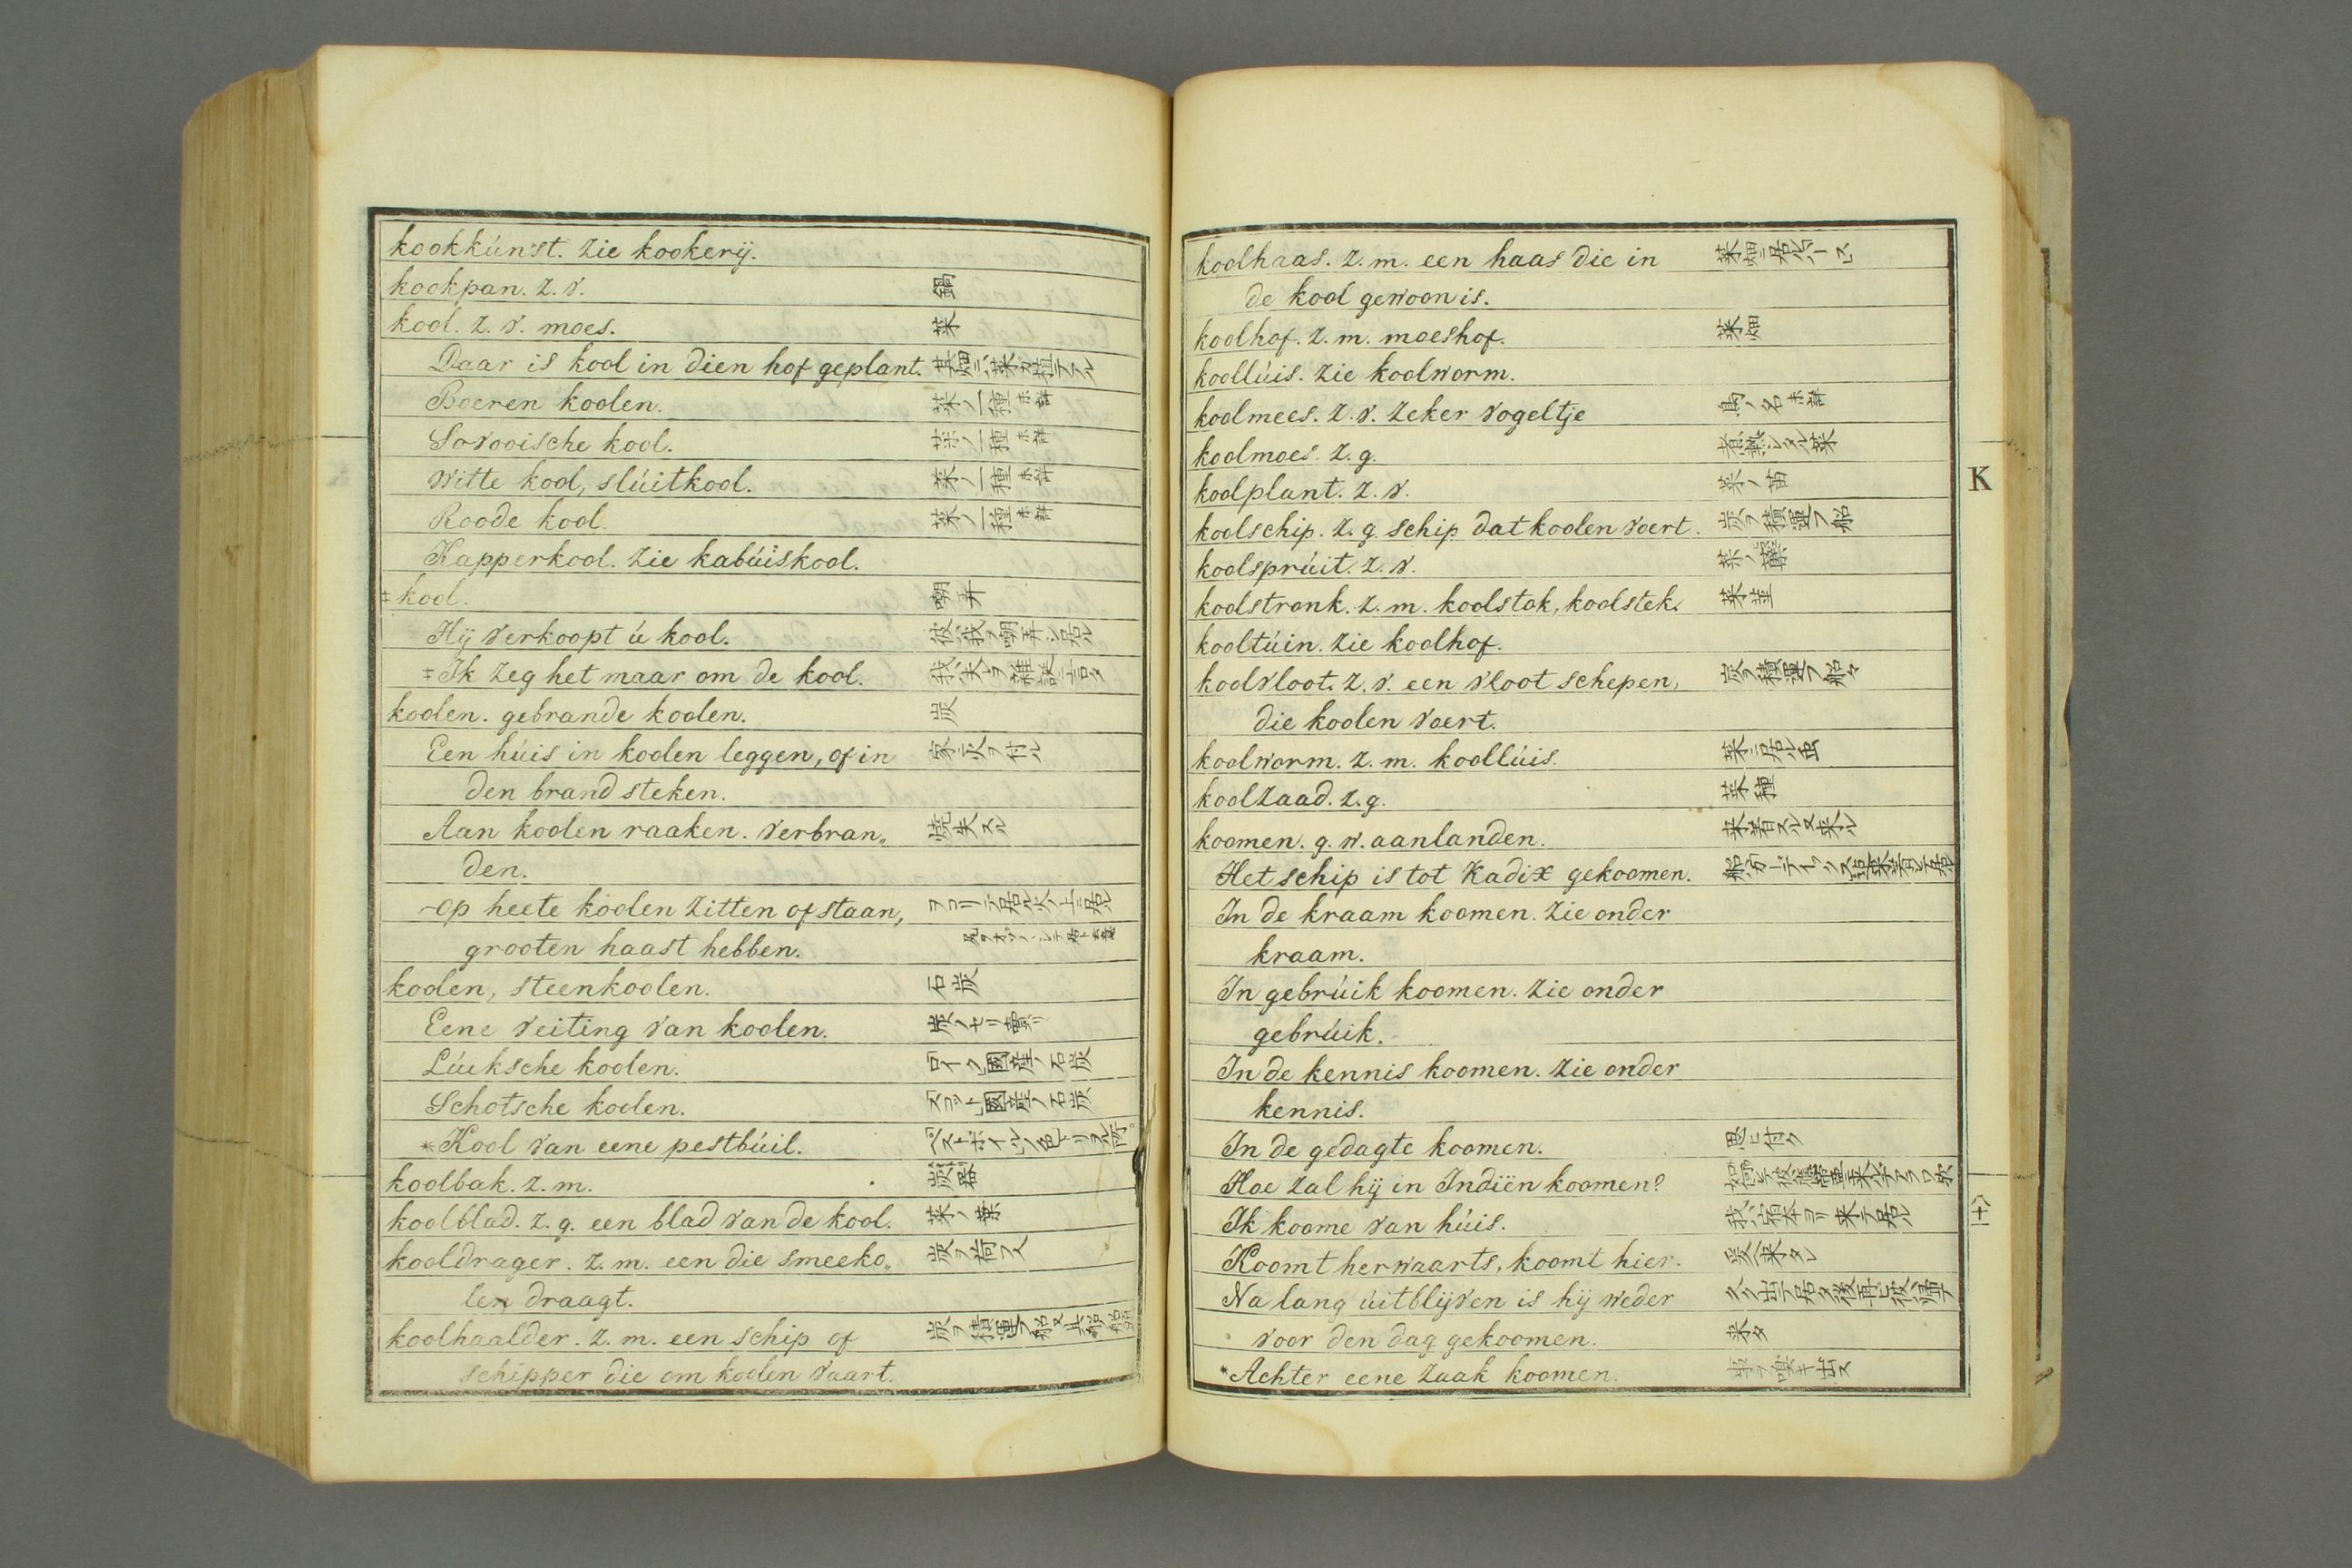 kookkúnst. zie kookerÿ.
kookpan. z. v. 鍋
kool. z. v. moes. 菜
Daar is kool in dien hof geplant. 其畑ニハ菜カ植テアル
Boeren koolen. 菜ノ一種 未詳
Sovooische kool. 菜ノ一種 未詳
Witte kool, slúitkool. 菜ノ一種 未詳
Roode kool. 菜ノ一種 未詳
Kapperkool. zie kabúiskool.
‡ kool. 嘲弄
Hÿ verkoopt ú kool. 彼ハ我ヲ嘲弄シ居ル
‡ Ik zeg het maar om de kool.
koolen. gebrande koolen. 炭
Een húis in koolen leggen, of in 家ニ火ヲ付ル
den brand steken.
Aan koolen raaken. verbran„ 焼失スル
den.
op heete koolen zitten of staan, ヲコリテ居ル火ノ上ニ居ル
grooten haast hebben.
koolen, steenkoolen. 石炭
Eene veiting van koolen. 炭ノセリ賣リ
Lúiksche koolen. ロイク國産ノ石炭
Schotsche koolen. スコット國産ノ石炭
* Kool van eene pestbúil.
koolbak. z. m. 炭器
koolblad. z. g. een blad van de kool. 菜ノ葉
kooldrager. z. m. een die smeeko„ 炭ヲ荷フ人
len draagt.
koolhaalder. z. m. een schip of 炭ヲ積運フ船又其船
schipper die om koolen vaart.
koolhaas. z. m. een haas die in 菜畑ニ居ルハース
de kool gewoon is.
koolhof. z. m. moeshof. 菜畑
koollúis. zie koolworm.
koolmees. z. v. zeker vogeltje 鳥ノ名 未詳
koolmoes. z. g. 煮熟シタル菜
koolplant. z. v. 菜ノ苗
koolschip. z. g. schip dat koolen voert. 炭ヲ積運フ船
koolsprúit. z. v. 菜ノ蘖
koolstronk. z. m. koolstok, koolstek. 菜茎
kooltúin. zie koolhof.
koolvloot. z. v. een vloot schepen, 炭ヲ積運フ船々
die koolen voert.
koolworm. z. m. koollúis. 菜ニ居ル虫
koolzaad. z. g. 菜種
koomen. g. w. aanlanden. 来着スル又来ル
Het schip is tot Kadix gekoomen. 船カカーディックス迄来着シテ居
In de kraam koomen. zie onder
kraam.
In gebrúik koomen. zie onder
gebrúik.
In de kennis koomen. zie onder
kennis.
In de gedagte koomen. 思ヒ付ク
Hoe zal hÿ in Indiën koomen?
Ik koome van húis. 我ハ宿本ヨリ来テ居ル
Koomt herwaarts, koomt hier. 爰ヘ来タレ
Na lang úitblÿven is hÿ weder 久ク出テ居タ後再ヒ彼ハ帰テ
voor den dag gekoomen. 来タ
* Achter eene zaak koomen. 事ヲ嗅キ出ス
K